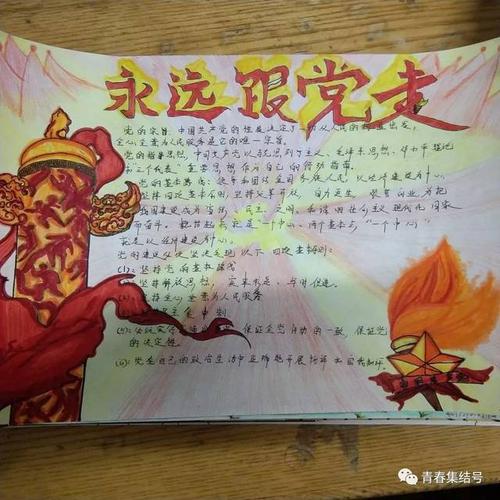 永远跟党走
党的宗旨：中国共产党的性质决定了一切从人民的利益出发，
全心全意为人民服务是它的唯一宗旨。
党的指导思想：中国共产党以马克思列宁主义、毛泽东思想、邓小平理论
和"三个代表"重要思想作为自己的行动指南。
党的基本路线：领导和团结全国各族人民，以经济建设为中心，
坚持四项基本原则，坚持改革开放，自力更生，艰苦创业，为把
我国建设成为富强、民主、文明、和谐的社会主义现代化国家
而奋斗。概括起来就是一个中心，两个基本点，"一个中心"
就是以经济建设为中心。
党的建设必须坚决实现以下四项基本要求：
(1)：坚持党的基本路线
坚持解放思想，实事求是，与时俱进。
坚持全心全意为人民服务
民主集中制
保证全党行动的一致，保证党
的决定
党在自己的政治生活中正确地开展批评
青春集结号